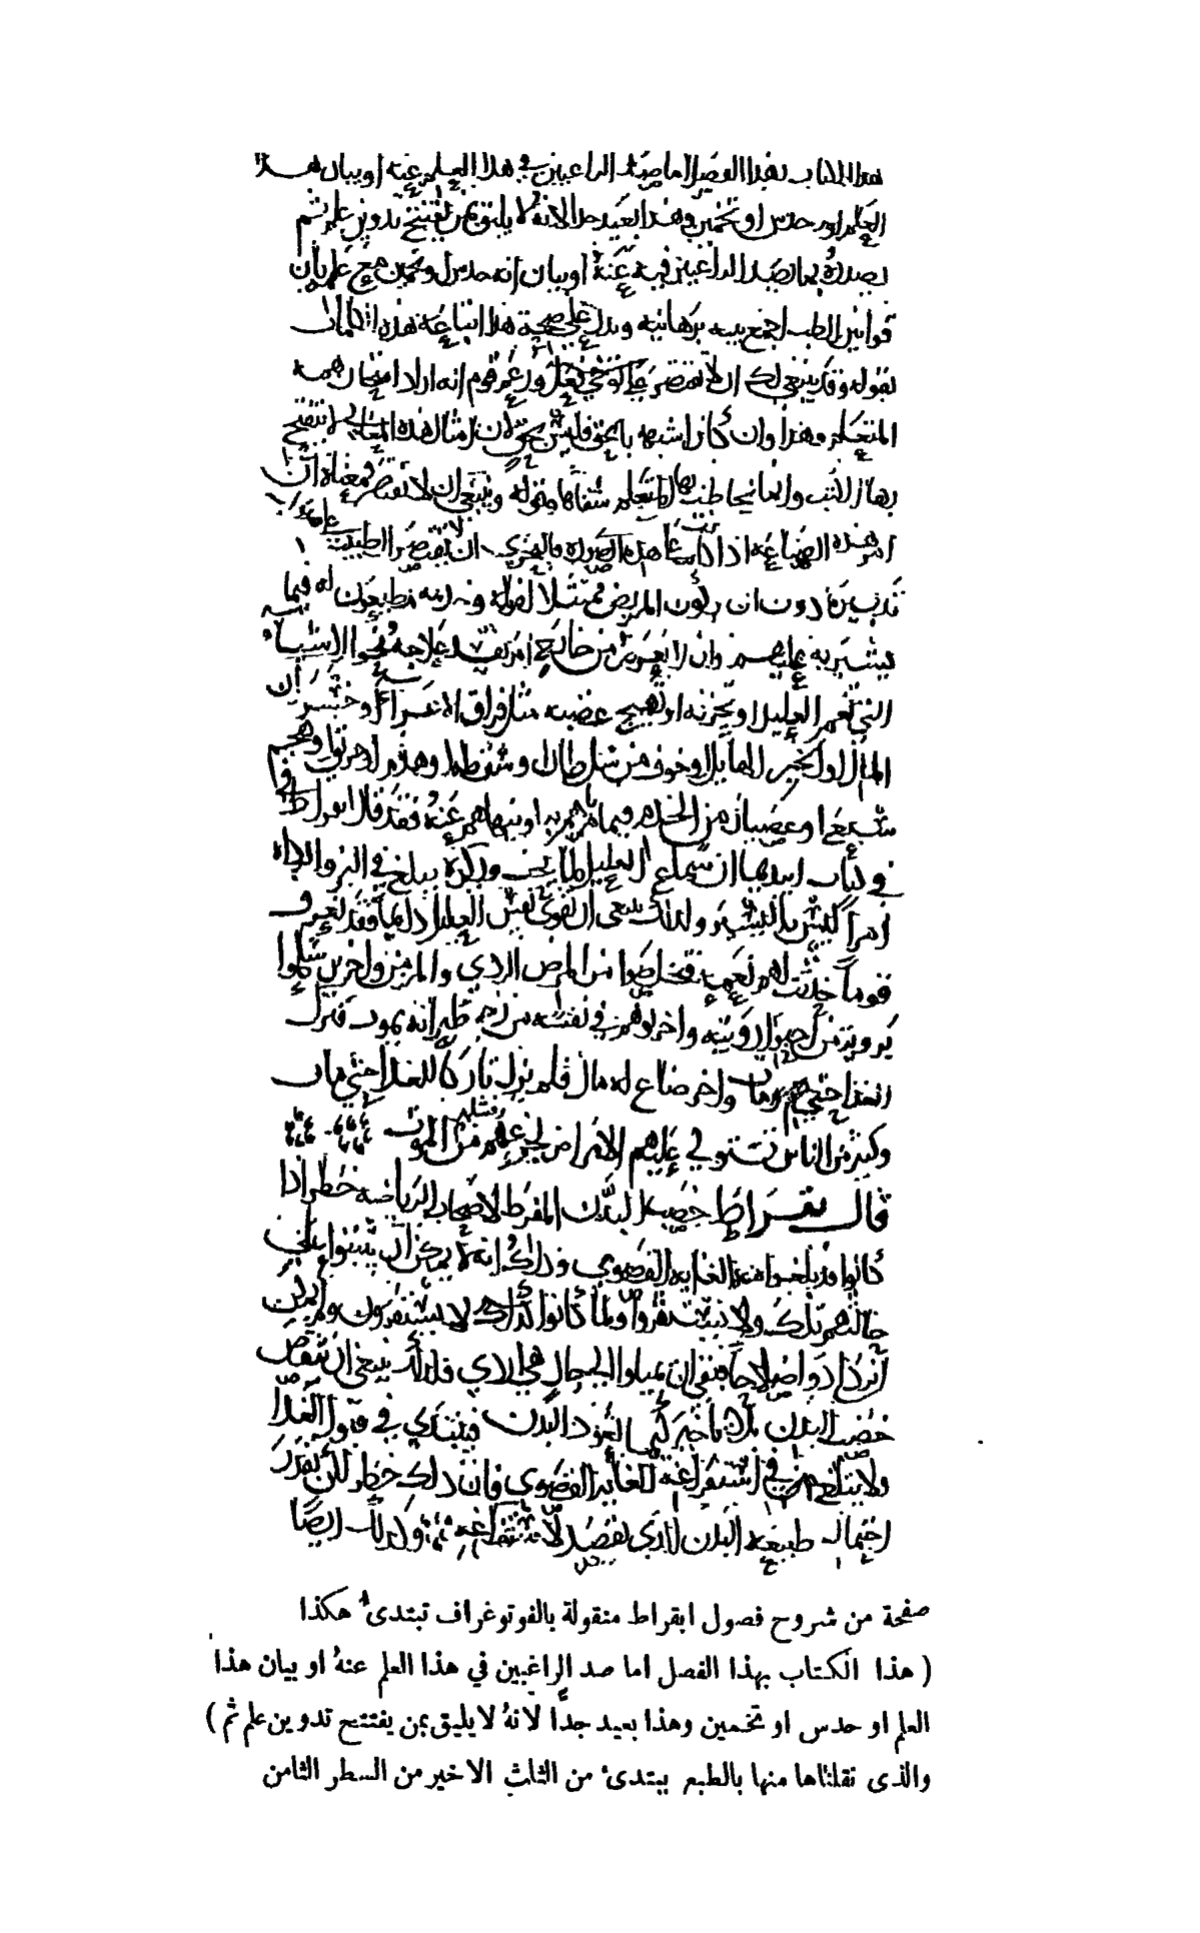 هذا الكتاب بهذا الفصل اما صد الراغبين في هذا العلم عنه او بيان هذا
العلم او حدس او تخمين وهذا بعيد جدا لانه لا يليق بمن يفتتح تدوين علم ثم
يصدره بما يصد الراغبين فيه عنه او بيان انه حدس او تخمين مع علمه بان
قوانين الطب اجمع برهانية ويدل على صحة هذا اتباعه هذه الكلمات
بقوله وقد ينبغي لك ان لا تقتصر على توخي فعل وزعم قوم انه اراد امتحان همة
المتعلم وهذا وان كان اشبه بالحق فليس بحق لان امثال هذه المعاني لا تفتتح
بها الكتب وانما يخاطب بها المتعلم شفاها وقوله وينبغي ان لا تقتصر معناه ان
هذه الصناعة اذا كانت على هذه الصورة فالحري ان لا يقتصر الطبيب على
تدبيره دون ان يكون المريض ممتثلا لقوله وخدمه مطيعون له فيما
يشير به عليهم وان لا يعرض من خارج امر يفسد علاجه نحو الاشياء
التي تغم العليل او تحزنه او تهيج غضبه مثل فراق الاعزاء او خسران
المال او الخبر الهائل او خوف من سلطان او سقطة او هدم او حريق او هجم
سبع او عصيان من الخدم فيما يامرهم به او ينهاهم عنه فقد قال ابقراط في
في كتاب ابيديميا ان سماع العليل لما يحب ويكره يبلغ في البرو والداء
امرا ليس باليسير ولذلك ينبغي ان تقوى نفس العليل دائما فقد نعرف
قوما حدثت لهم نعمة فتخلصوا من المرض الردي والمزمن واخرين سلموا
برويتهم من احبوا رويته واخر توهم في نفسه من زجر طير انه يموت فترك
الغذا حتى مات واخر ضاع له مال فلم يزل تاركا للغذا حتى مات
وكثير من الناس تستولي عليهم الامراض لجزعهم من الموت
قال بقراط خصب البدن المفرط لاصحاب الرياضة خطر اذا
كانوا قد بلغوا منه الغاية القصوى وذلك انه لا يمكن ان يثبتوا على
حالهم تلك ولا يستقروا ولما كانوا لذلك لا يستقرون ولم يمكن
ان يزدادوا صلاحا فبقي ان يميلوا الى حال هي اردى فلذلك ينبغي ان ينقص
خصب البدن بلا تاخير كيما يعود البدن فيبتدي في قبول الغذا
ولا يبلغ في استفراغه الغاية القصوى فان ذلك خطر لكن بقدر
احتمال طبيعة البدن الذي يقصد لاستفراغه وكذلك ايضا
صفحة من شروح فصول ابقراط منقولة بالفوتوغراف تبتدئ هكذا
( هذا الكتاب بهذا الفصل اما صد الراغبين في هذا العلم عنهُ او بيان هذا
العلم او حدس او تخمين وهذا بعيد جداً لانهُ لا يليق بمن يفتتح تدوين علم ثم )
والذى نقلناها منها بالطبع يبتدئ من الثلث الاخير من السطر الثامن